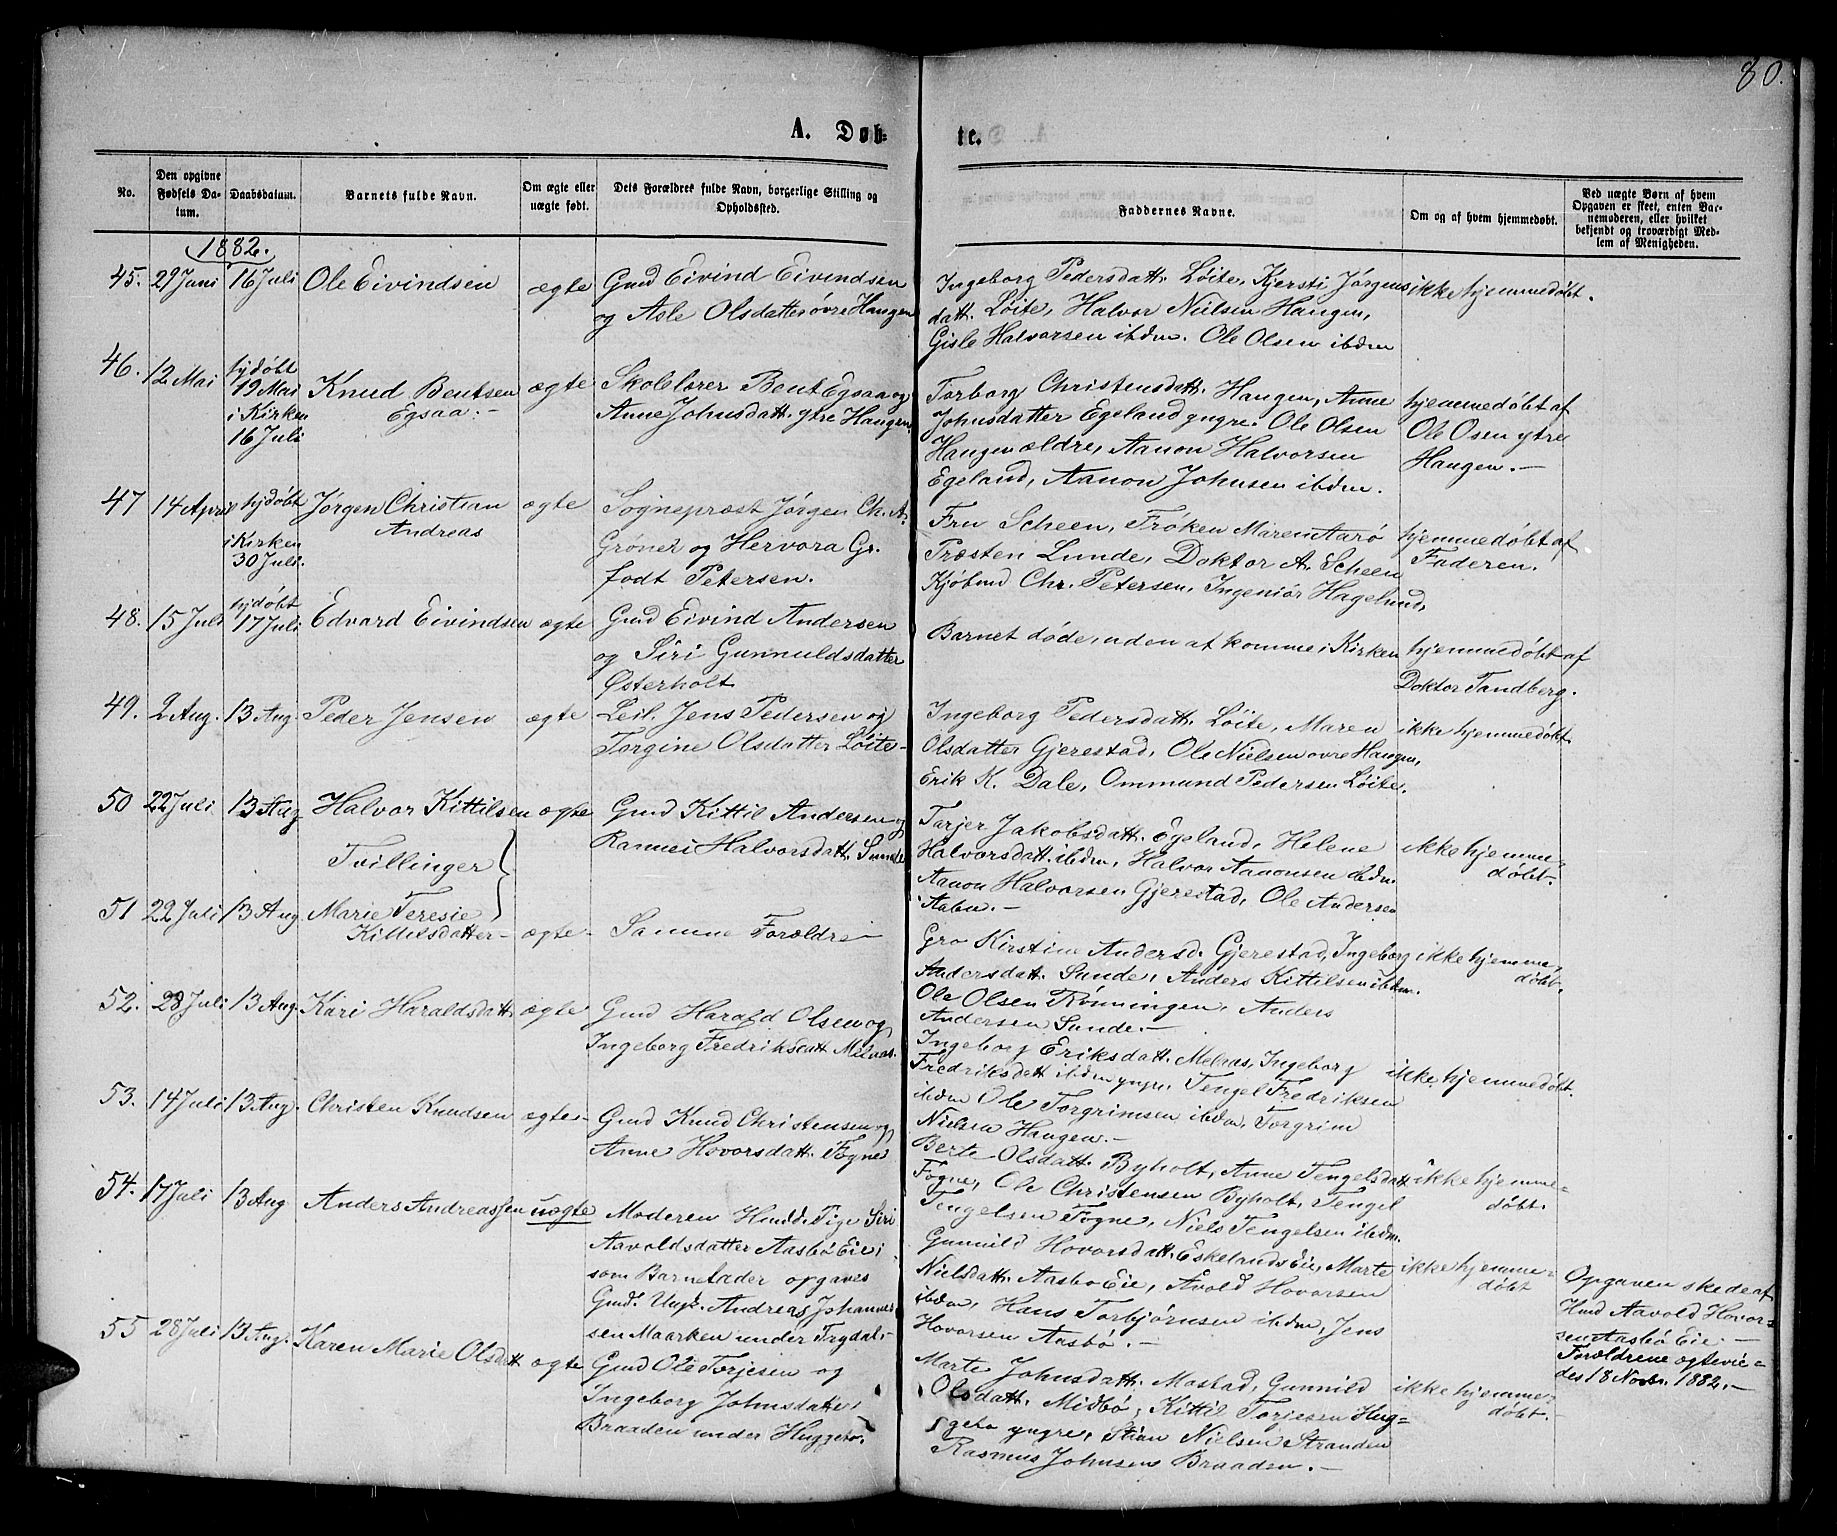 80.
A. Døb-
te.
No.
Den opgivne Fødsels Datum.
Daabsdatum.
Barnets fulde Navn.
Om ægte eller uægte født.
Dets Forældres fulde Navn, borgerlige Stilling og Opholdssted.
Faddernes Navne.
Om og af hvem hjemmedøbt.
Ved uægte Børn af hvem Opgaven er skeet, enten Barnemoderen, eller hvilket bekjendt og troværdigt Medlem af Menigheden.
1882.
45. 29 Juni 16 Juli Ole Eivindsen ægte
Gmd Eivind Eivindsen
og Asle Olsdatter øvre Haugen
Ingeborg Pedersdatt. Løite, Kjersti Jørgens
datt. Løite, Halvor Nielsen Haugen,
Gisle Halvorsen ibdm. Ole Olsen ibdm
ikke hjemmedøbt.
46. 12 Mai
hjdøbt
19 Mai
i Kirken
16 Juli
Knud Bentsen
Egsaa.-
ægte
Skolelærer Bent Egsaa og
Anne Johnsdatt. ytre Haugen.
Torborg Christensdatt. Haugen, Anne
Johnsdatter Egeland yngre. Ole Olsen
Haugen ældre, Aanon Halvorsen
Egeland, Aanon Johnsen ibdm.
hjemmedøbt af
Ole Osen ytre
Haugen.-
47 14 April
hjdøbt
i Kirken
30 Juli.
Jørgen Christian
Andreas
ægte
Sogneprest Jørgen Ch. A.
Grøner og Hervora Gr.
født Petersen.
Fru Scheen, Frøken Maren Aarø
Præsten Lunde, Doktor A. Scheen
Kjøbmd Chr. Petersen, Ingeniør Hagelund,
hjemmedøbt af
Faderen.
48. 15 Juli
hjdøbt
17 Juli
Edvard Eivindsen ægte
Gmd Eivind Andersen
og Siri Gunnuldsdatter
Østerholt
Barnet døde, uden at komme i Kirken
hjemmedøbt af
Doktor Tandberg.
49. 2 Aug. 13 Aug. Peder Jensen ægte
Leil. Jens Pedersen og
Torgine Olsdatter Løite-
Ingeborg Pedersdatt. Løite, Maren
Olsdatter Gjerestad, Ole Nielsen øvre Haugen,
Erik K. Dale, Ommund Pedersen Løite.
ikke hjemmedøbt.
50 22 Juli 13 Aug Halvor Kittilsen ægte
Tvillinger
Gmd Kittil Andersen og
Rannei Halvorsdatt. Sunde
Torjer Jakobsdatt. Egeland, Helene
Halvorsdatt. ibdm, Halvor Aanonsen ibdm.
Aanon Halvorsen Gjerestad, Ole Andersen
ikke hjemme-
døbt.
51 22 Juli 13 Aug.
Marie Teresie
Kittilsdatter-
ægte-
Samme Forældre-
Gro Kirstine Andersd. Gjerestad, Ingeborg
Andersdatt. Sunde, Anders Kittilsen ibdm.
Ole Olsen Rønningen, Anders
Andersen Sunde.-
ikke hjemme-
døbt.
52. 28 Juli 13 Aug. Kari Haraldsdatt. ægte
Gmd Harald Olsen og
Ingeborg Fredriksdatt. Melaas.
Ingeborg Eriksdatt. Melaas, Ingeborg
Fredriksdatt ibdm yngre, Tengel Fredriksen
ibdm Ole Torgrimsen ibdm, Torgrim
Nielsen Haugen.-
ikke hjemmedøbt.
53. 14 Juli 13 Aug. Christen Knudsen ægte-
Gmd Knud Christensen og
Anne Hovorsdatt. Fogne
Berte Olsdatt. Byholt, Anne Tengelsdatt.
Fogne, Ole Christensen Byholt, Tengel
Tengelsen Fogne, Niels Tengelsen ibdm.
ikke hjemme-
døbt.
54. 17 Juli 13 Aug Anders Andreassen uægte
Moderen Husmd. Pige Siri
Aavoldsdatter Aasbø Eie
som Barnefader opgaves
Gmd. Ungk. Andreas Johannes
sen Maarken under Trydal.-
Gunnild Hovorsdatt. Eskelands Eie, Marte
Nielsdatt. Aasbø Eie, Avold Hovorsen
ibdm, Hans Torbjørnsen ibdm, Jens
Hovorsen Aasbø.-
ikke hjemme-
døbt
Opgaven skede af
Husmd Aavold Hovor-
sen Aasbø Eie.-
Forældrene ægtevie-
des 18 Novbr. 1882.-
55 28 Juli 13 Aug. Karen Marie Olsdatt ægte
Gmd Ole Torjesen og
Ingeborg Johnsdatter
Braaden under Huggeto.
Marte Johnsdatt. Mostad, Gunnild
Olsdatt. Midbø, Kittil Torjesen Hug-
geto yngre, Stian Nielsen Stranden
Rasmus Johnsens Braaden.-
ikke hjemme-
døbt.-